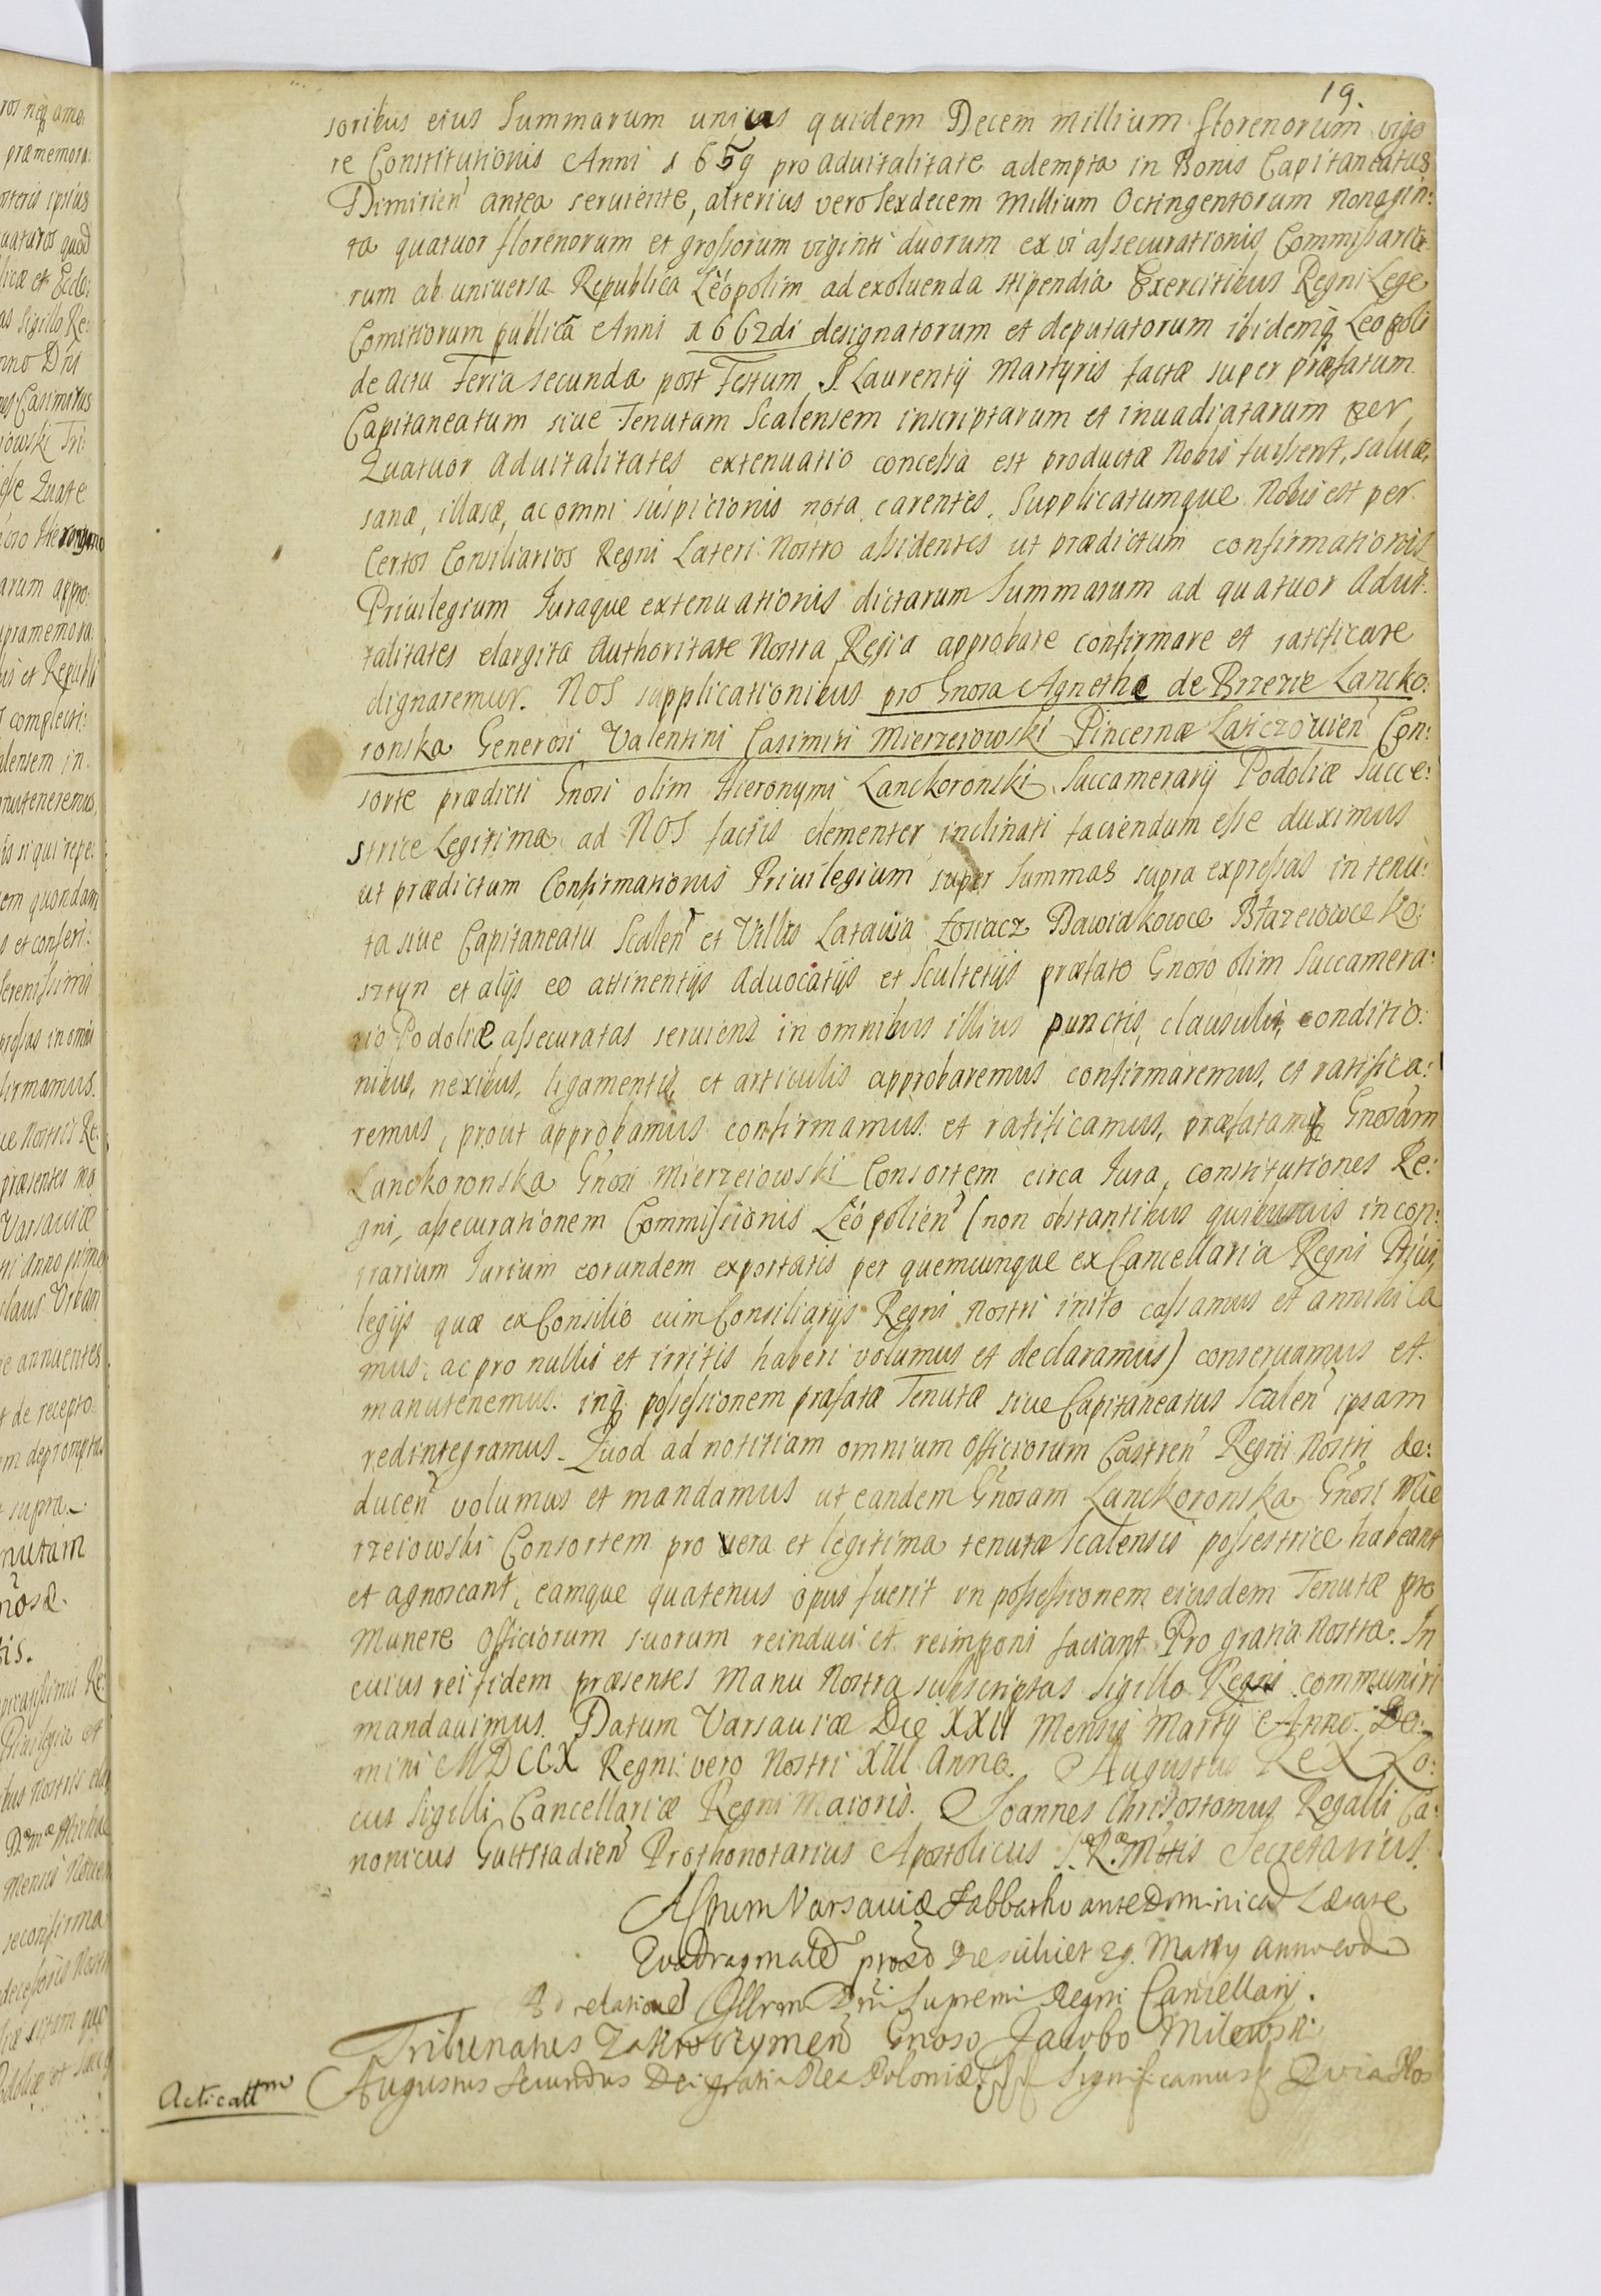 19.
soribus eius Summarum unius quidem Decem millium florenorum vigo
re Constitutionis Anni 1659 pro aduitalitate adempta in Bonis Capitaneatus
Dimirien antea seruiente, alterius vero Sexdecem Millium Octingentorum Nonagin:
ta quatuor florenorum et grossorum viginti duorum ex vi assecurationis Commissario:
rum ab universa Republica Leopolim ad exoluenda stipendia Exercitibus Regni Lege
Comitiorum publica Anni 1662di designatorum et deputatorum ibidemq Leopoli
de actu Feria secunda post Festum S. Laurentij Martyris factæ super præfatum
Capitaneatum siue Tenutam Scalensem inscriptarum et inuadiatarum per
Quatuor aduitalitates extenuatio concessa est productæ Nobis fuissent, saluæ,
sanæ, illæsæ, ac omni suspicionis nota carentes. Supplicatumque Nobis est per
Certos Consiliarios Regni Lateri Nostro assidentes ut prædictum confirmationis
Priuilegium Juraque extenuationis dictarum Summarum ad quatuor Adui:
talitates elargita Authoritate Nostra Regia approbare confirmare et ratificare
dignaremur. NOS supplicationibus pro Gnosa Agnethe de Brzezie Lancko:
ronska Generosi Valentini Casimiri Mierzeiowski Pincernæ Laticzouien Con:
sorte prædicti Gnosi olim Hieronymi Lanckoronski Succamerarij Podoliæ Succe:
strice Legitima ad NOS factis clementer inclinati faciendum esse duximus
ut prædictum Confirmationis Priuilegium super Summas supra expressas in tenu:
ta siue Capitaneatu Scalen et Villis Latawa Zowacz Dawidkowce Błazeiowce Ko:
sztyn et alijs eo attinentijs Aduocatijs et Scultetijs præfato Gnoso olim Succamera:
rio Podoliæ assecuratas seruiens in omnibus illius punctis, clausulis, conditio:
nibus, nexibus, ligamentis, et articulis approbaremus confirmaremus, et ratifica:
remus, prout approbamus confirmamus et ratificamus, præfatamq Gnosam
Lanckoronska Gnosi Mierzeiowski Consortem circa Jura, constitutiones Re:
gni, assecurationem Commissionis Leopolien (non obstantibus quibusuis in con:
trarium Jurium eorundem exportatis per quemcunque ex Cancellaria Regni Priui
legijs quæ ex Consilio cum Consiliarijs Regni Nostri inito cassamus et annihila
mus, ac pro nullis et irritis haberi volumus et declaramus) conseruamus et
manutenemus. inq possessionem præfatæ Tenutæ siue Capitaneatus Scalen ipsam
redintegramus. Quod ad notitiam omnium Officiorum Castren Regni Nostri de:
ducen volumus et mandamus ut eandem Gnosam Lanckoronska Gnosi Mie
rzeiowski Consortem pro vera et legitima tenutæ Scalensis possestrice habeant
et agnoscant, eamque quatenus opus fuerit in possessionem eiusdem Tenutæ pro
Munere Officiorum suorum reinduci et reimponi faciant Pro gratia Nostra. In
cuius rei fidem præsentes Manu Nostra subscriptas Sigillo Regni communiri
mandauimus. Datum Varsauiæ Die XXII Mensis Martij Anno Do:
mini MDCCX Regni vero Nostri XIII Anno. Augustus Rex Lo:
cus Sigilli Cancellariæ Regni Maioris. Joannes Chrisostomus Regalli Ca:
nonicus Guttstadien Prothonotarius Apostolicus S. R. Mtis Secretarius.
Actum Varsauiæ Sabbatho ante Dominica Lætare
Quadragmale proxo Die scilicet 29. Martij Anno eod
Ad relatione Illrm Dni Supremi Regni Cancellarij.
Tribunatus Zakroczymen Gnoso Jacobo Milewski
Acticattm Augustus Secundus Dei gratia Rex Poloniæ Significamus Quia Nos